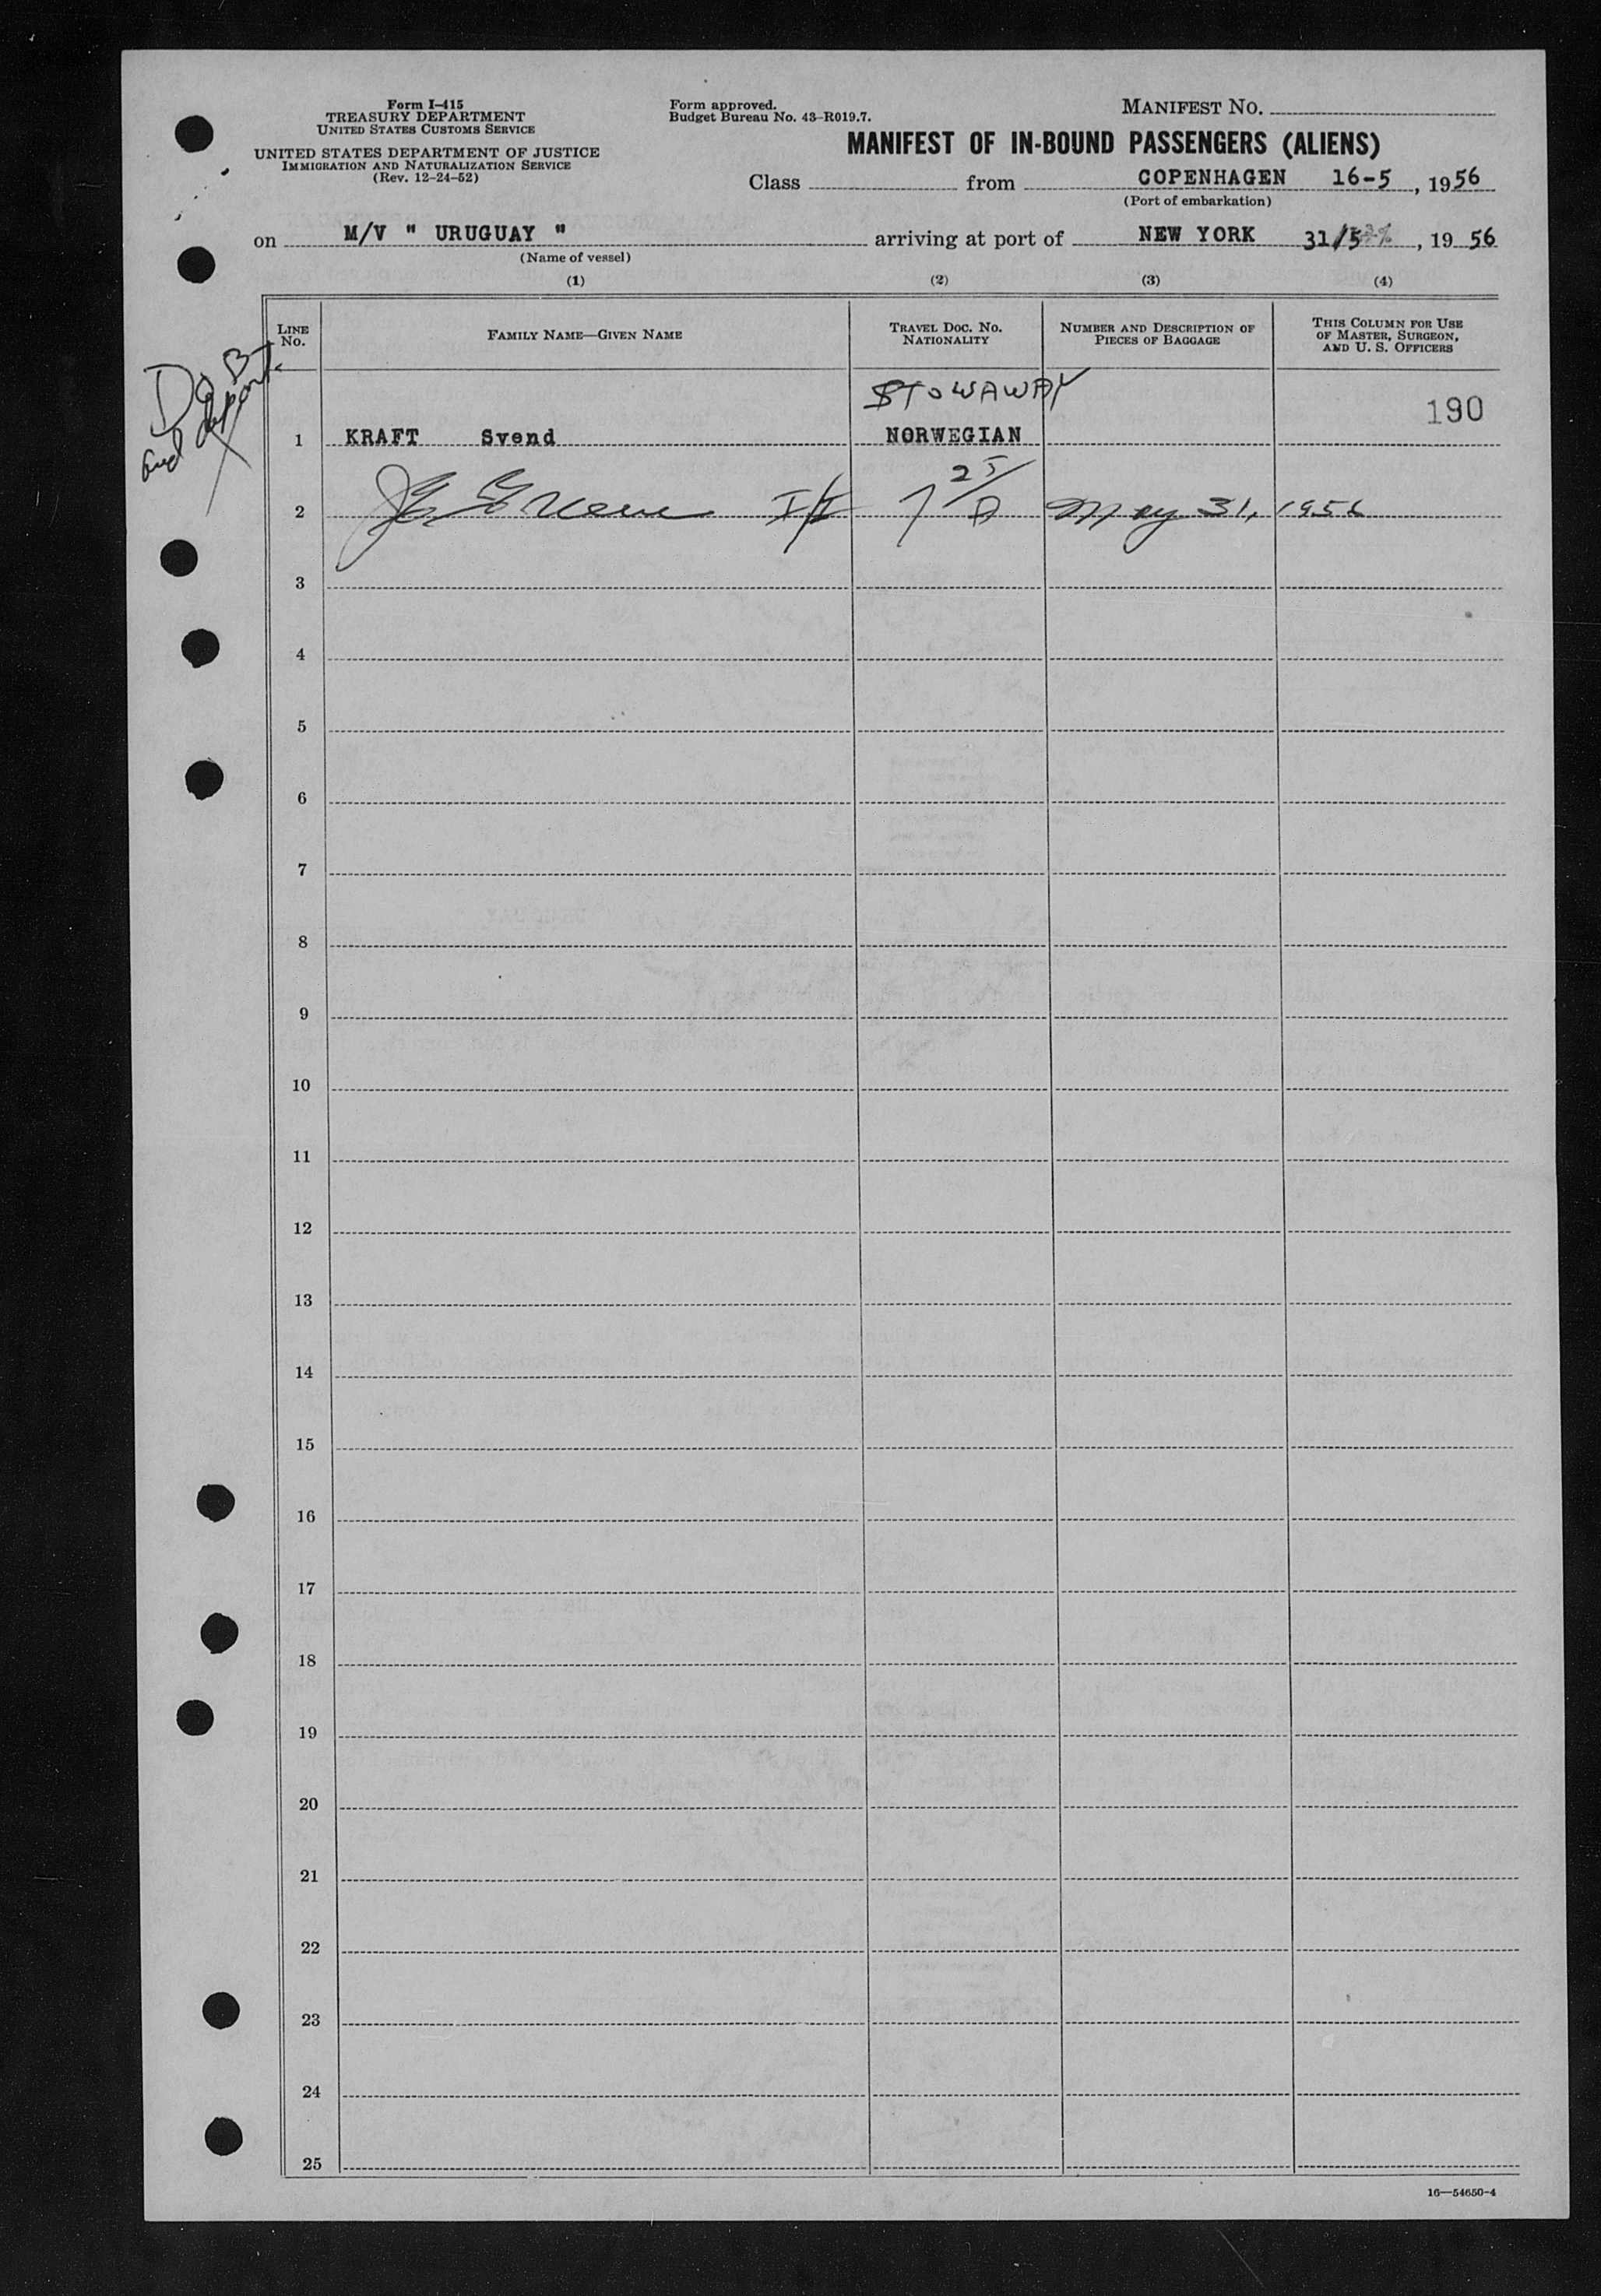 Form I-415
TREASURY DEPARTMENT
UNITED STATES CUSTOMS SERVICE
UNITED STATES DEPARTMENT OF JUSTICE
IMMIGRATION AND NATURALIZATION SERVICE
(Rev. 12-24-52)
Form approved.
Budget Bureau No. 43-R019.7.
MANIFEST No.
MANIFEST OF IN-BOUND PASSENGERS (ALIENS)
Class from COPENHAGEN 16-5, 1956
(Port of embarkation)
on M/V " URUGUAY " arriving at port of NEW YORK 31/5, 19 56
(Name of vessel)
(1) (2) (3) (4)
LINE No.
FAMILY NAME—GIVEN NAME
TRAVEL DOC. NO. NATIONALITY
NUMBER AND DESCRIPTION OF PIECES OF BAGGAGE
THIS COLUMN FOR USE OF MASTER, SURGEON, AND U. S. OFFICERS
and deport
STOWAWAY
190
1 KRAFT Svend NORWEGIAN
2 May 31, 1956
3
4
5
6
7
8
9
10
11
12
13
14
15
16
17
18
19
20
21
22
23
24
25
16—54650-4